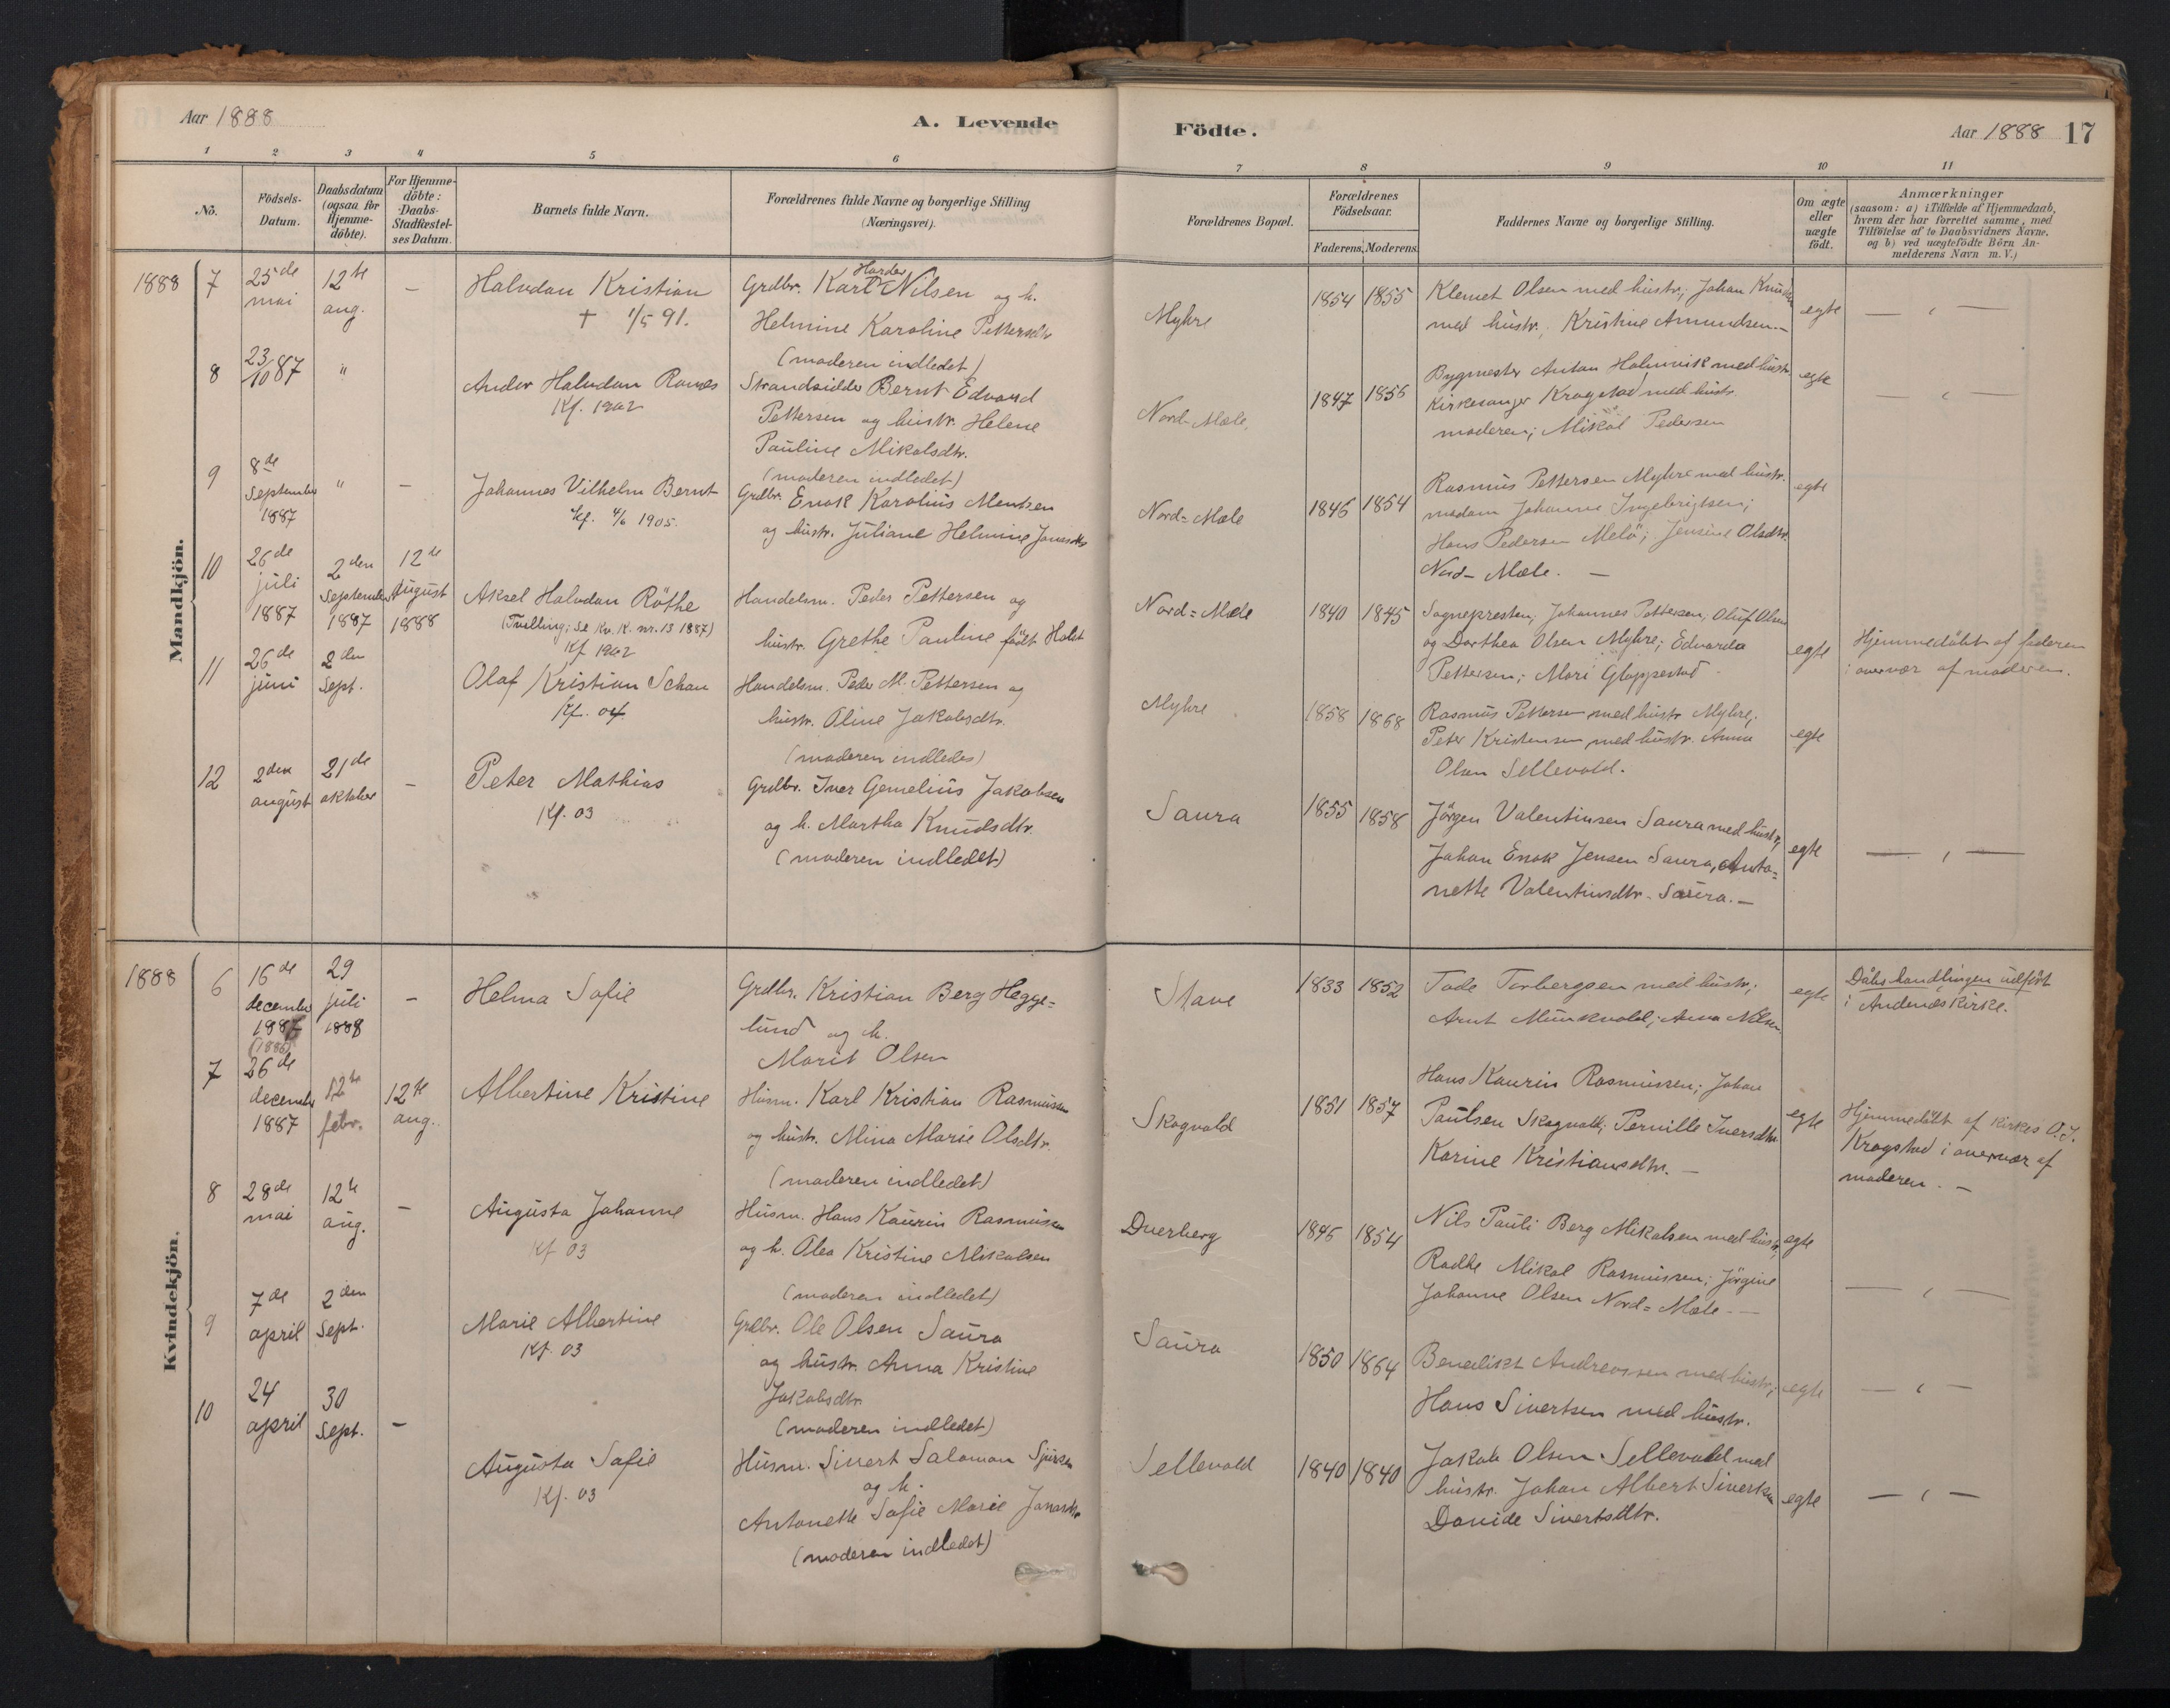 Aar 1888
A. Levende
Födte.
Aar 1888 17
1 2 3 4 5 6 7 8 9 10 11
No.
Födsels-
Datum.
Daabsdatum
(ogsaa for
Hjemme-
döbte).
For Hjemme-
döbte:
Daabs-
Stadfæstel-
ses Datum.
Barnets fulde Navn.
Forældrenes fulde Navne og borgerlige Stilling
(Næringsvei).
Forældrenes Bopæl.
Forældrenes
Födselsaar.
Faderens. Moderens.
Faddernes Navne og borgerlige Stilling.
Om ægte
eller
uægte
födt.
Anmærkninger
(saasom: a) i Tilfælde af Hjemmedaab,
hvem der har forrettet samme, med
Tilföielse af to Daabsvidners Navne,
og b) ved uægtefödte Börn An-
melderens Navn m. V.)
Mandkjön.
1888 7
25de
mai
12te
aug.
–
Halvdan Kristian
† 1/5 91.
Harder
Grdbr. Karl Nilsen og h.
Helmine Karoline Pettersdtr
(moderen indledet)
Myhre
1854 1855
Klemet Olsen med hustr.; Johan Knudsen
med hustr. Kristine Amundsen –
egte
— " —
8
23/10 87
"
Andor Halvdan Ranæs
Kf. 1902
Strandsidder Bernt Edvard
Pettersen og hustr. Helene
Pauline Mikalsdtr.
(moderen indledet)
Nord-Mæle.
1847 1856
Bygmester Anton Holmvik med hustr.
Kirkesanger Krogstad med hustr.
moderen; Mikal Pedersen
egte
— " —
9
8de
September
1887
"
–
Johannes Vilhelm Bernt
kf. 4/6 1905.
Grdbr. Enok Karolius Mentzen
og hustr. Juliane Helmine Jonasdtr
Nord=Mæle
1846 1854
Rasmus Pettersen Myhre med hustr.
madam Johanne Ingebrigtsen;
Hans Pedersen Melö; Jensine Olsdtr.
Nord-Mæle. –
egte
10
26de
juli
1887
2den
September
1887
12te
August
1888
Aksel Halvdan Röthe
(Tvilling; se Kv. K. nr. 13 1887)
Kf 1902
Handelsm. Peder Pettersen og
hustr. Grethe Pauline födt Holst
Nord=Mæle
1840 1845
Sognepresten, Johannes Pettersen, Oluf Olsen
og Dorthea Olsen Myhre; Edvarda
Pettersen; Mari Gloppestad
egte
Hjemmedöbt af faderen
i overvær af moderen.
11
26de
juni
2den
Sept.
Olaf Kristian Schau
Kf. 04
Handelsm. Peder M. Pettersen og
hustr. Oline Jakobsdtr.
(moderen indledes)
Myhre
1858 1868
Rasmus Pettersen med hustr Myhre;
Peter Kristensen med hustr. Anna
Olsen Sellevold.
egte
12
2den
august
21de
oktober
–
Peter Mathias
Kf. 03
Grdbr. Iver Gemelius Jakobsen
og h. Martha Knudsdtr.
(moderen indledet)
Saura
1855 1858
Jörgen Valentinsen Saura med hustr,
Johan Enok Jensen Saura, Anto=
nette Valentinsdtr. Saura. –
egte
— " —
Kvindekjön.
1888 6
16de
december
1887
(1886)
29
juli
1888
–
Helma Sofie
Grdbr. Kristian Berg Hegge=
lund og h.
Marit Olsen
Stave
1833 1852
Tode Torbergsen med hustr;
Arnt Munkvold; Anna Nilsen
egte
Dåbshandlingen udfört
i Andenæs kirke.
7
26de
december
1887
12te
febr.
12te
aug.
Albertine Kristine
Husm. Karl Kristian Rasmussen
og hustr. Mina Marie Olsdtr.
(moderen indledet)
Skogvold
1851 1857
Hans Kaurin Rasmussen; Johan
Paulsen Skogvold; Pernille Iversdtr.
Karine Kristiansdtr. –
egte
Hjemmedöbt af kirkes. O. J.
Krogstad i overvær af
moderen. –
8
28de
mai
12te
aug.
–
Augusta Johanne
Kf 03
Husm. Hans Kaurin Rasmussen
og h. Olea Kristine Mikalsen
(moderen indledet)
Dverberg
1845 1854
Nils Pauli Berg Mikalsen med hustr,
Radke Mikal Rasmussen; Jörgine
Johanne Olsen Nord=Mæle –
egte
— " —
9
7de
april
2den
Sept.
Marie Albertine
Kf. 03
Grdbr. Ole Olsen Saura
og hustr. Anna Kristine
Jakobsdtr.
(moderen indledet)
Saura
1850 1864
Benedikt Andreassen med hustr;
Hans Sivertsen med hustr.
egte
— " —
10
24
april
30
Sept.
–
Augusta Sofie
Kf. 03
Husm. Sivert Salomon Sjursen
og h.
Antonette Sofie Marie Jonasdtr
(moderen indledet)
Sellevold
1840 1840
Jakob Olsen Sellevold med
hustr. Johan Albert Sivertsen
Davide Sivertsdtr.
egte
— " —